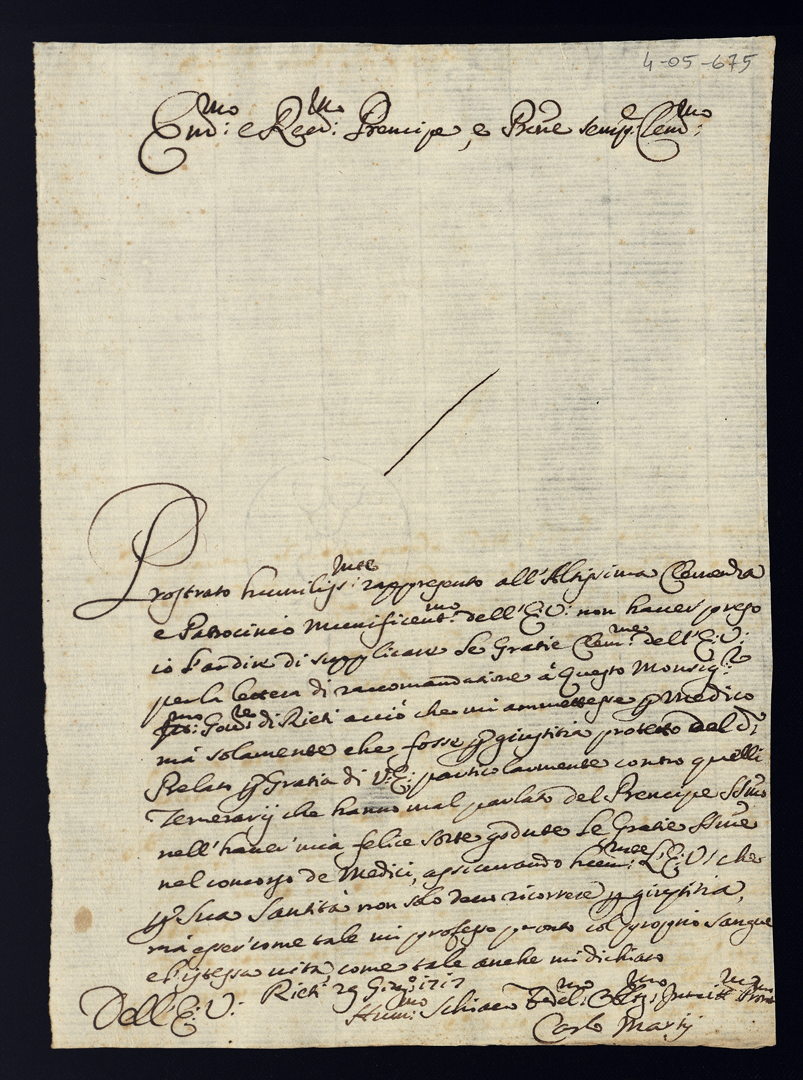 4-05-675
Em̃:mo e Rev̄:mo Prencipe, e Pnẽ semp:e Clem:mo
Prostrato humiliss:mte rappresento all'Altissima Clemenza
e Patrocinio Munificent:mo dell'E:V: non haver preso
io l'ardire di supplicare le Gratie Clem:me dell'E:V:
per la lettera di raccomandatione à Questo Monsig:r
Gov:re di Rieti acciò che mi ammettesse p Medico
mà solamente che fosse p giustitia protetto del di
Prelato p Gratia di V:E: particolarmente contro quelli
Temerarij che hanno mal parlato del Prencipe
nell'haver mia felice sorte godute le Gratie
nel concorso de Medici, assicurando hum:mte l'E:V: che
p Sua Santità non solo devo ricorrere p giustitia,
mà esser come tale mi professo pronto col proprio sangue
e l'istessa vita, come tale anche mi dichiaro
Dell'E:V: Rieti 29 Giug:o 1717
Hum:mo Schiavo Fedel:mo
Carlo Marij